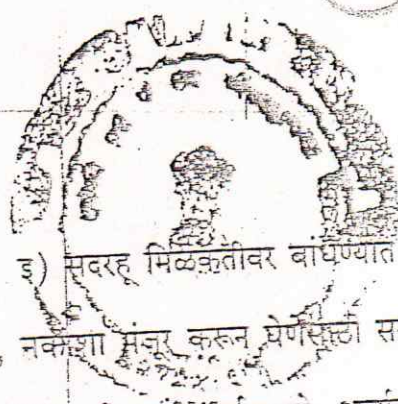 इ) सदरहू मिळकतीवर बांधण्यात
नकाशा मंजूर करून घेणेसाठी स